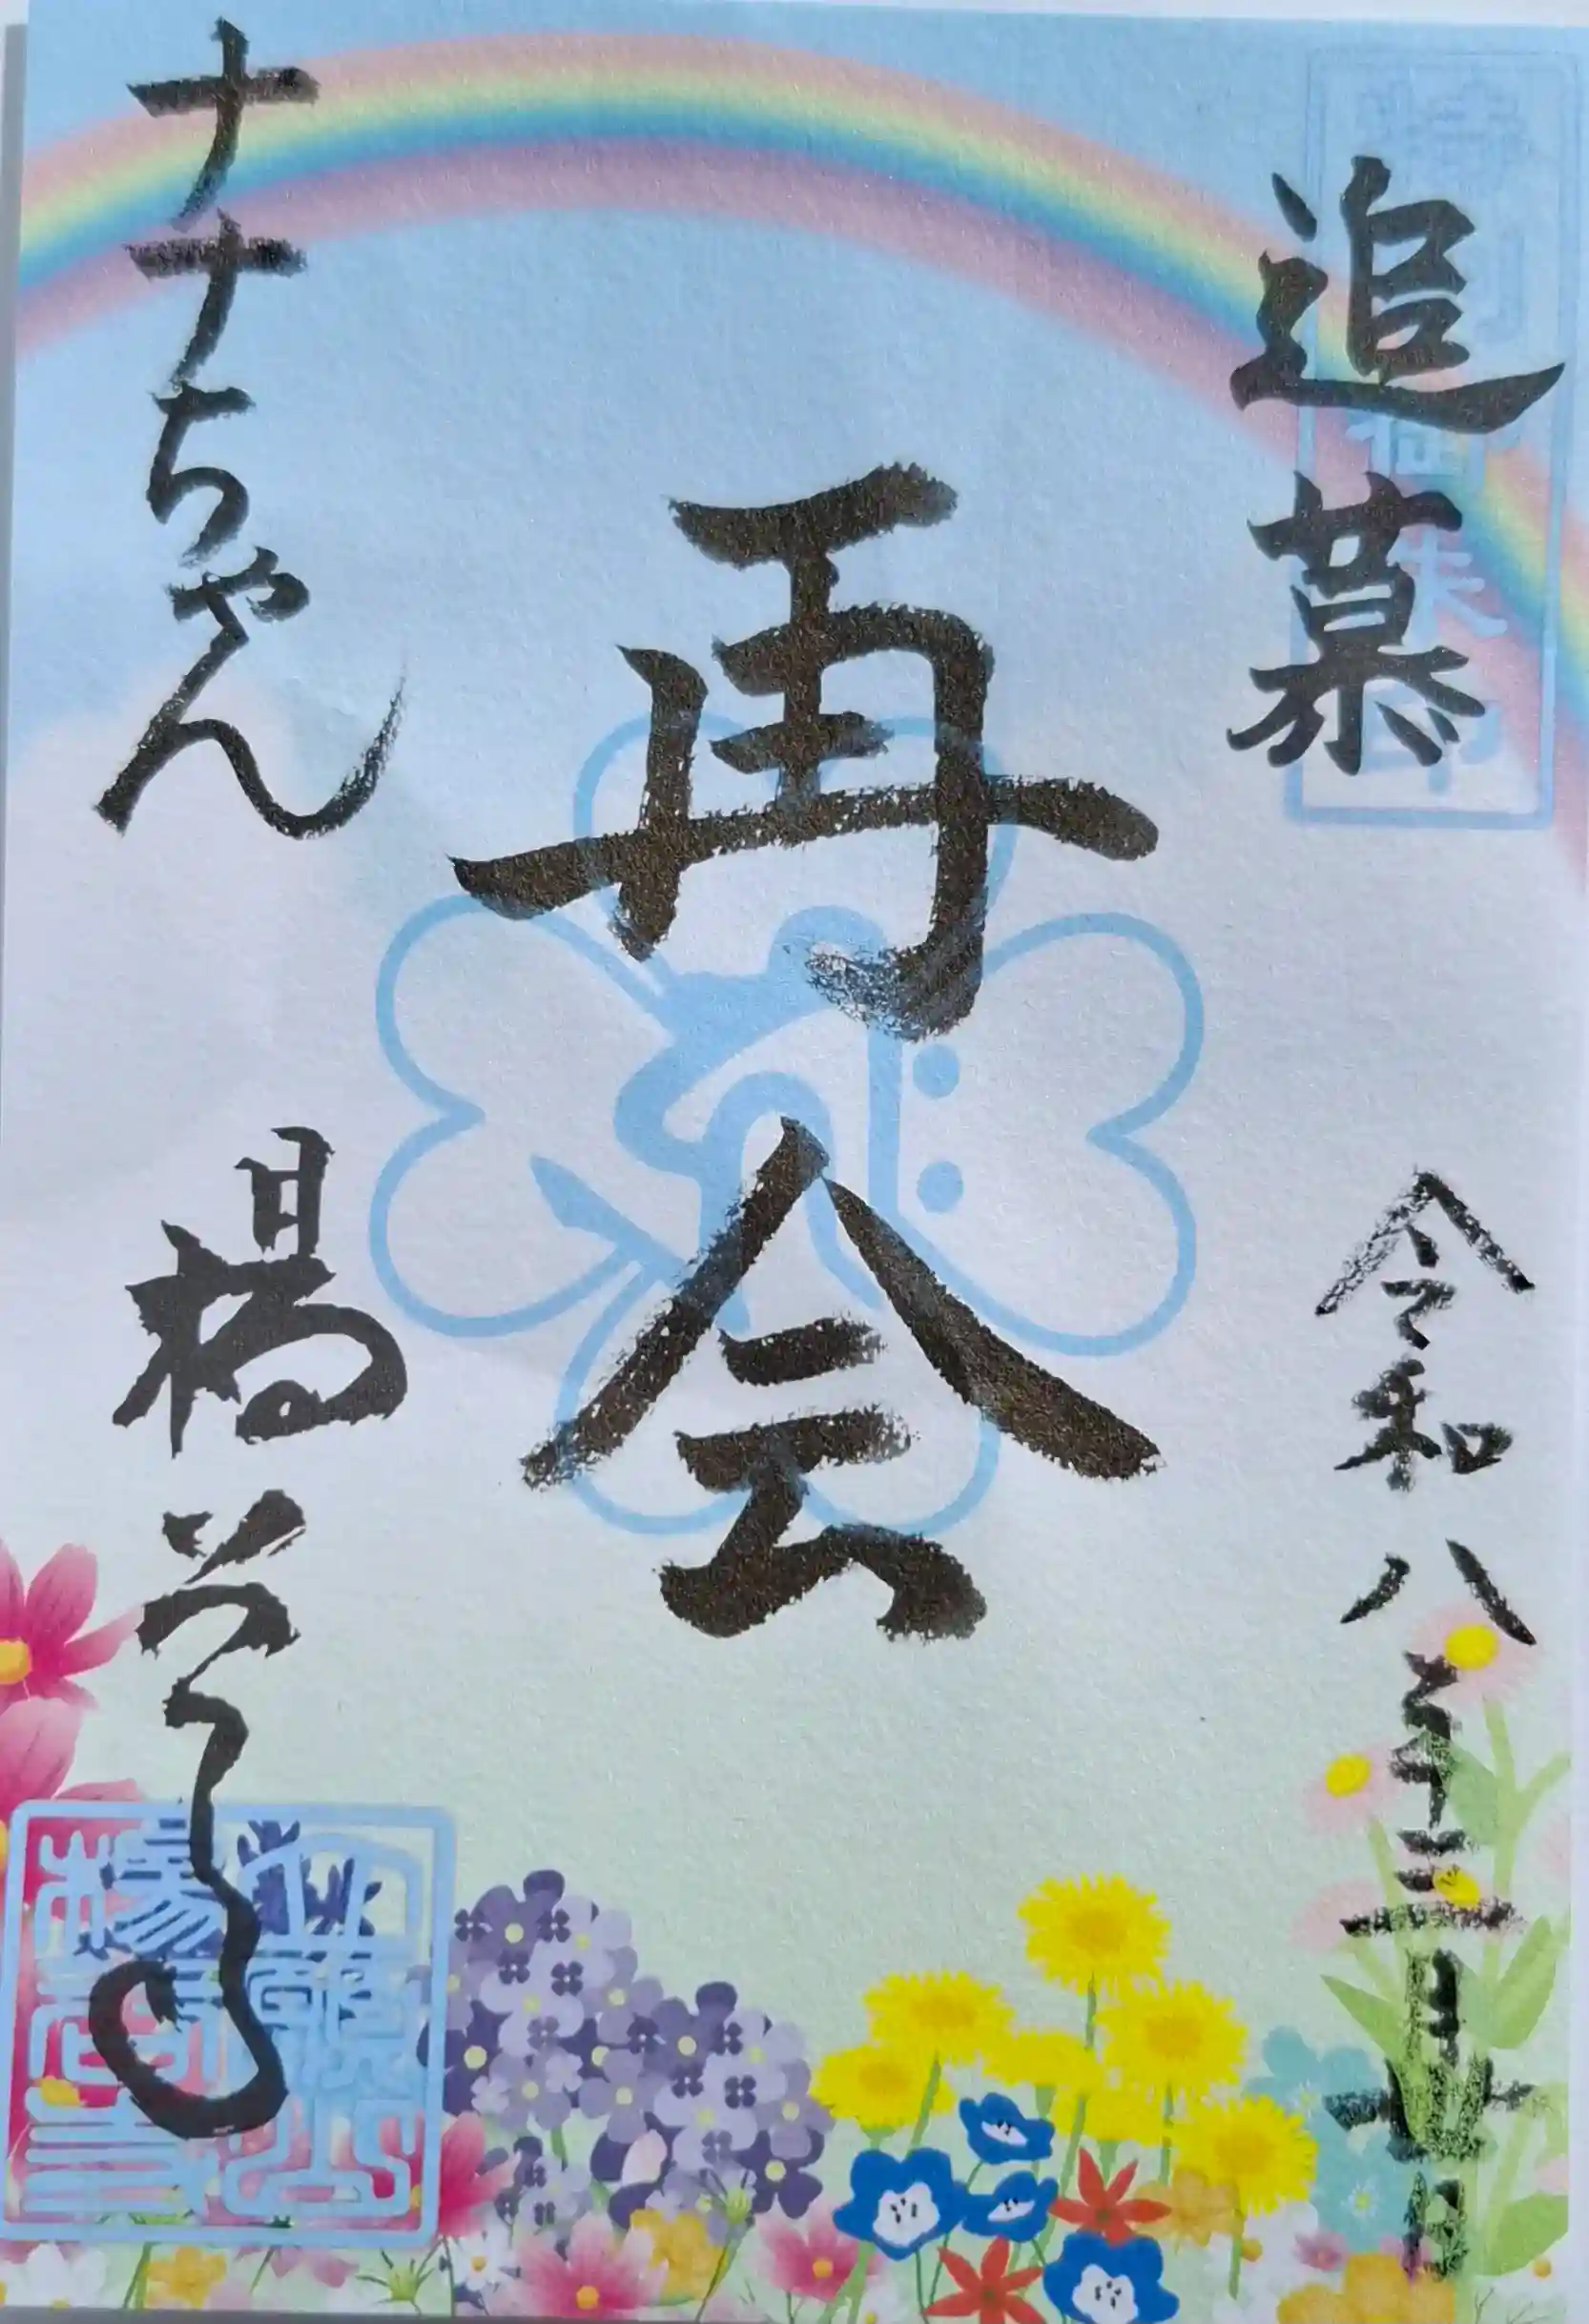 追慕
令和八年三月廿日
再会
ナナちゃん
楊谷寺